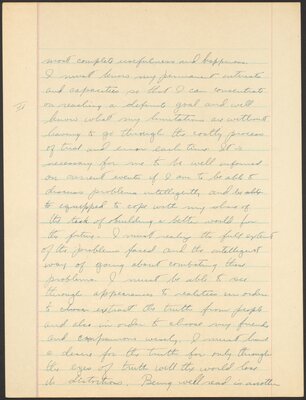 most complete usefulness and happiness.
I must know my permanent interests
and capacities so that I can concentrate
on reaching a definite goal and will
know what my limitations are without
having to go through the costly process
of trial and error each time. It is
necessary for me to be well informed
on current events if I am to be able to
discuss problems intelligently and be able
to equipped to cope with my share of
the task of building a better world for
the future. I must realize the full extent
of the problems faced and the intelligent
way of going about combating these
problems. I must be able to see
through appearances to realities in order
to extract the truth from people
and also in order to choose my friends
and companions wisely. I must have
a desire for the truth for only through
the eyes of truth will the world lose
its distortions. Being well read is another